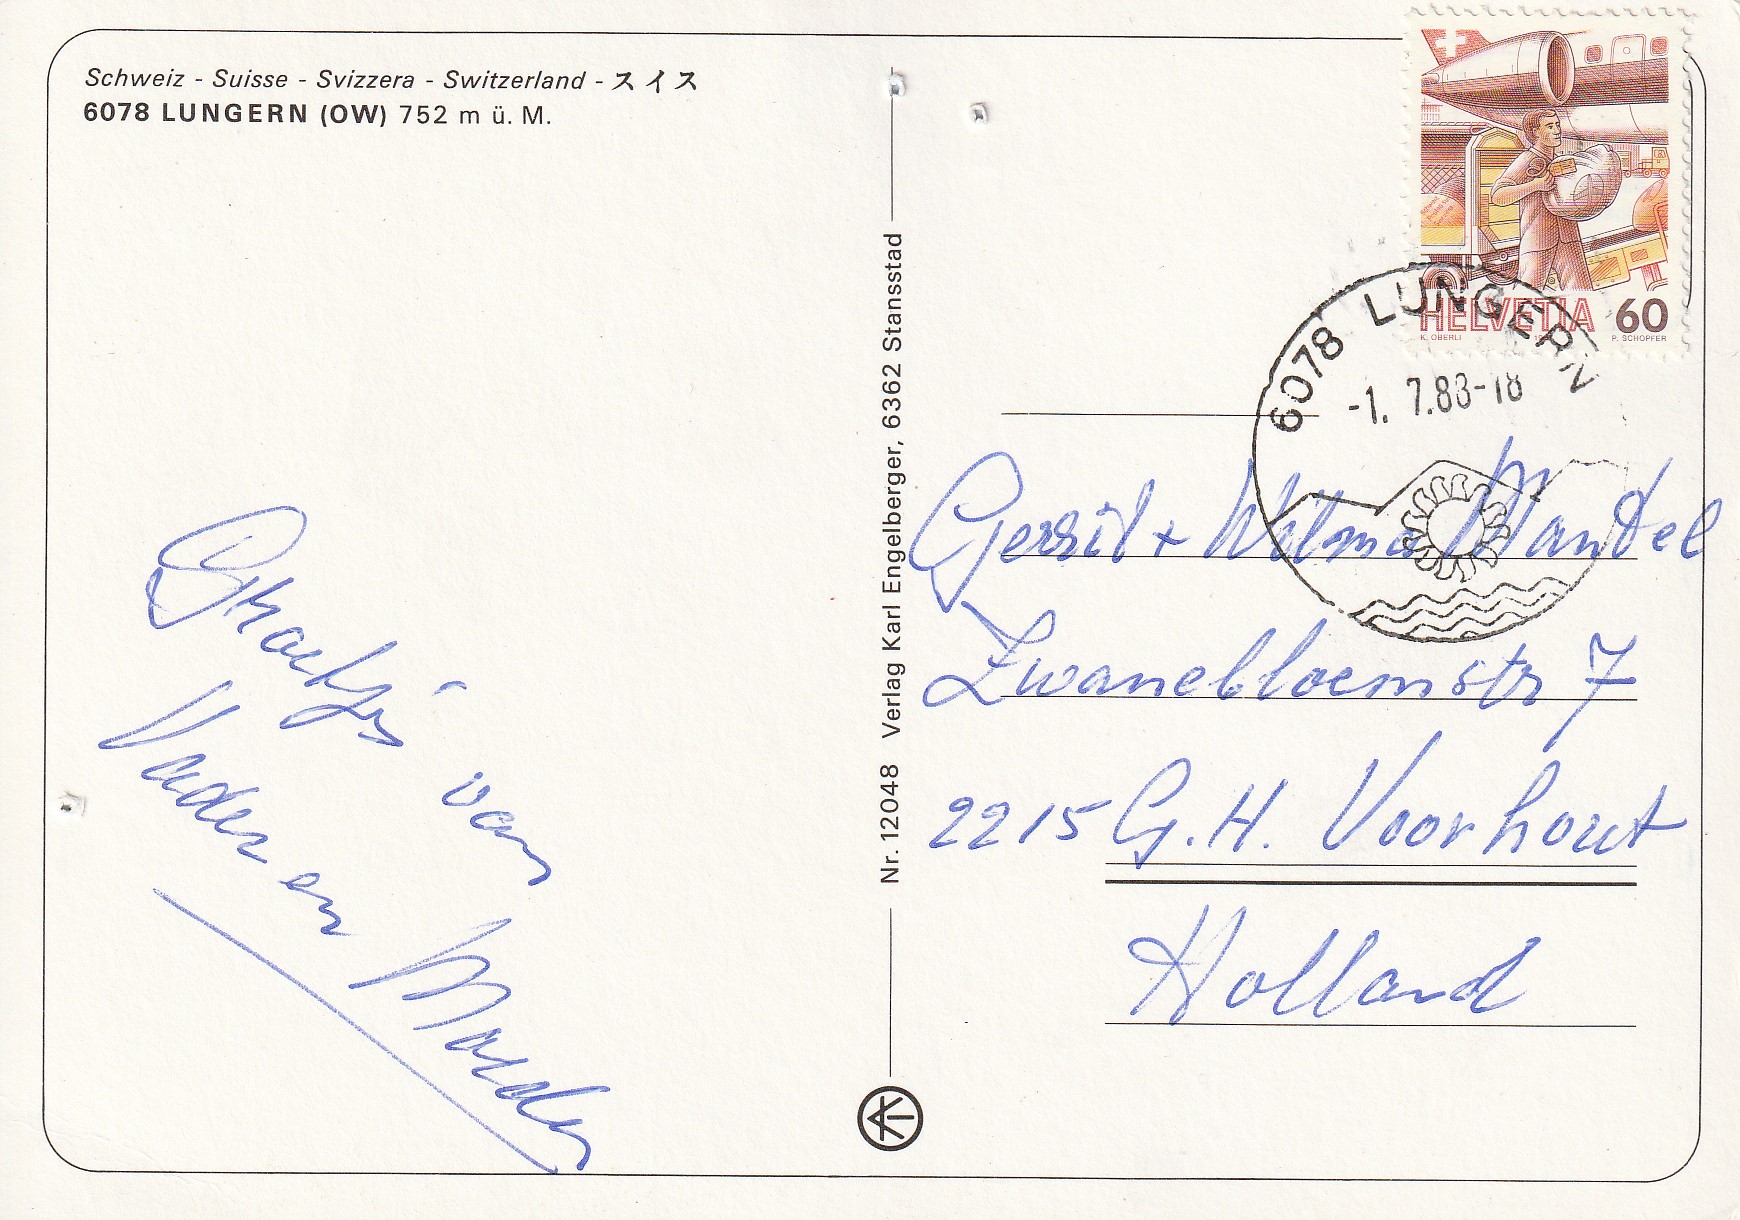 Schweiz - Suisse - Svizzera - Switzerland - スイス
6078 LUNGERN (OW) 752 m ü. M.
Groetjes van
Vader en Moeder
Nr. 12048 Verlag Karl Engelberger, 6362 Stansstad
HELVETIA 60
K. OBERLI P. SCHOPFER
6078 LUNGERN
-1. 7.88-18
Gerrit + Wilma Mandel
Zwanebloemstr 7
2215 G.H. Voorhout
Holland